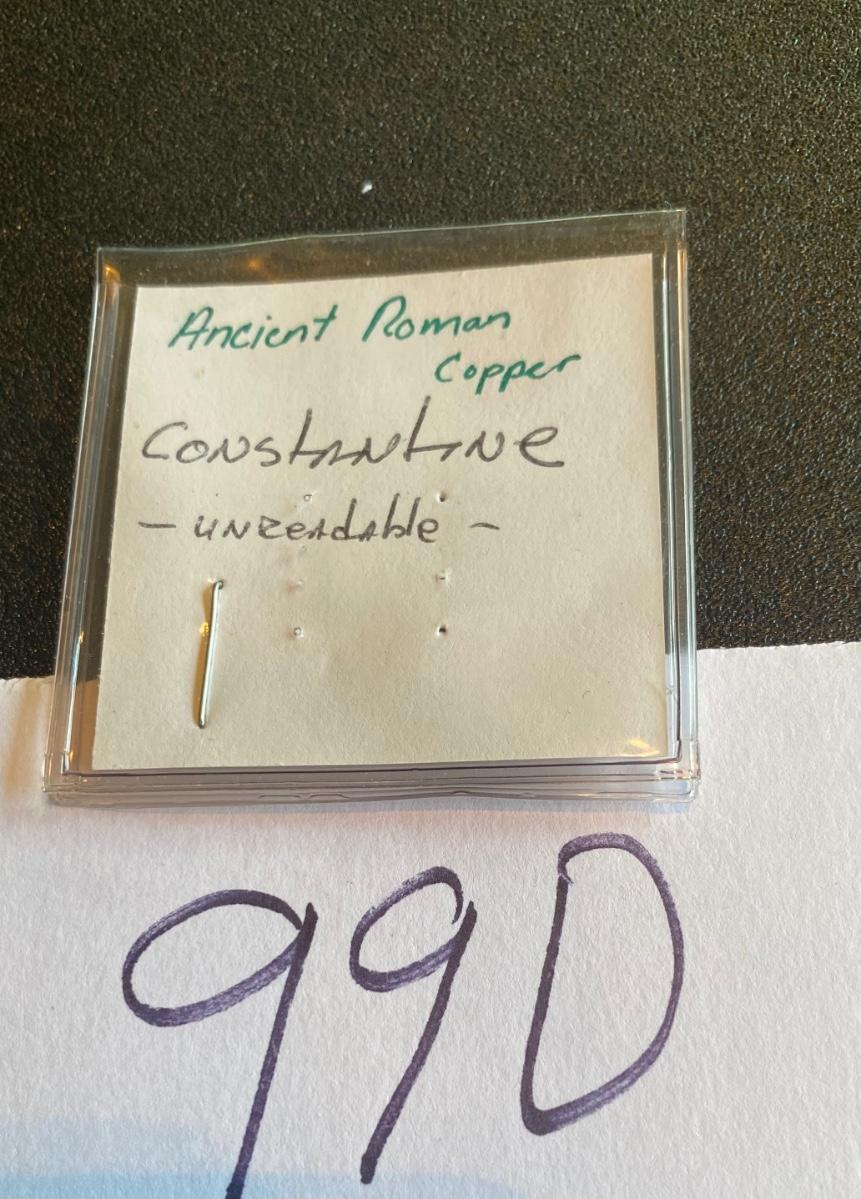 Ancient Roman
Copper
Constantine
- unreadable -
99D